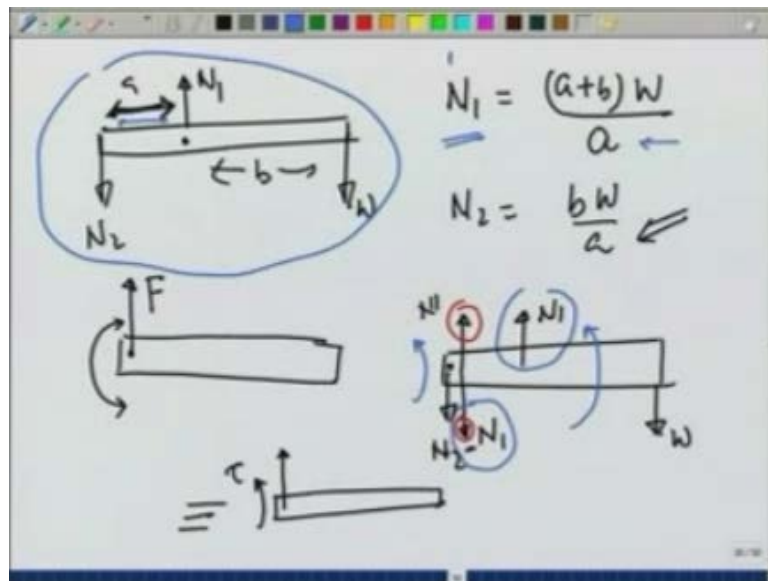 a
N₁
b
N₂
W
N₁ = (a+b) W / a
N₂ = b W / a
F
N1
N1
N₂ - N₁
W
τ